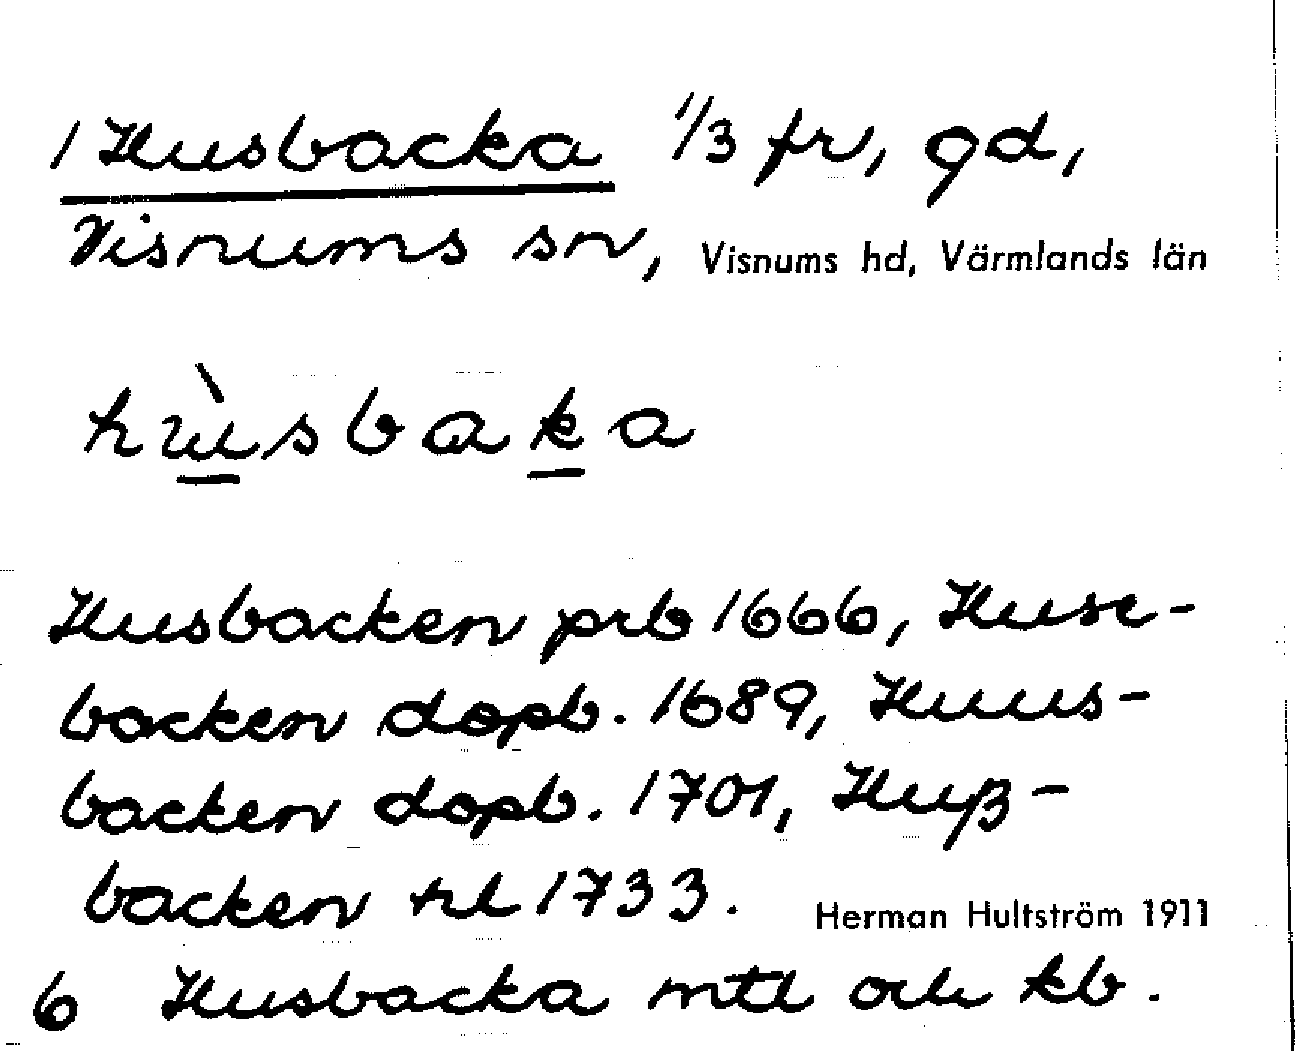 1 Husbacka 1/3 fr, gd,
Visnums sn, Visnums hd, Värmlands län
hùsbaka
Husbacken prb 1666, Huse-
backen dopb. 1689, Huus-
backen dopb. 1701, Huß-
backen tel 1733. Herman Hultström 1911
6 Husbacka mtl och kb.